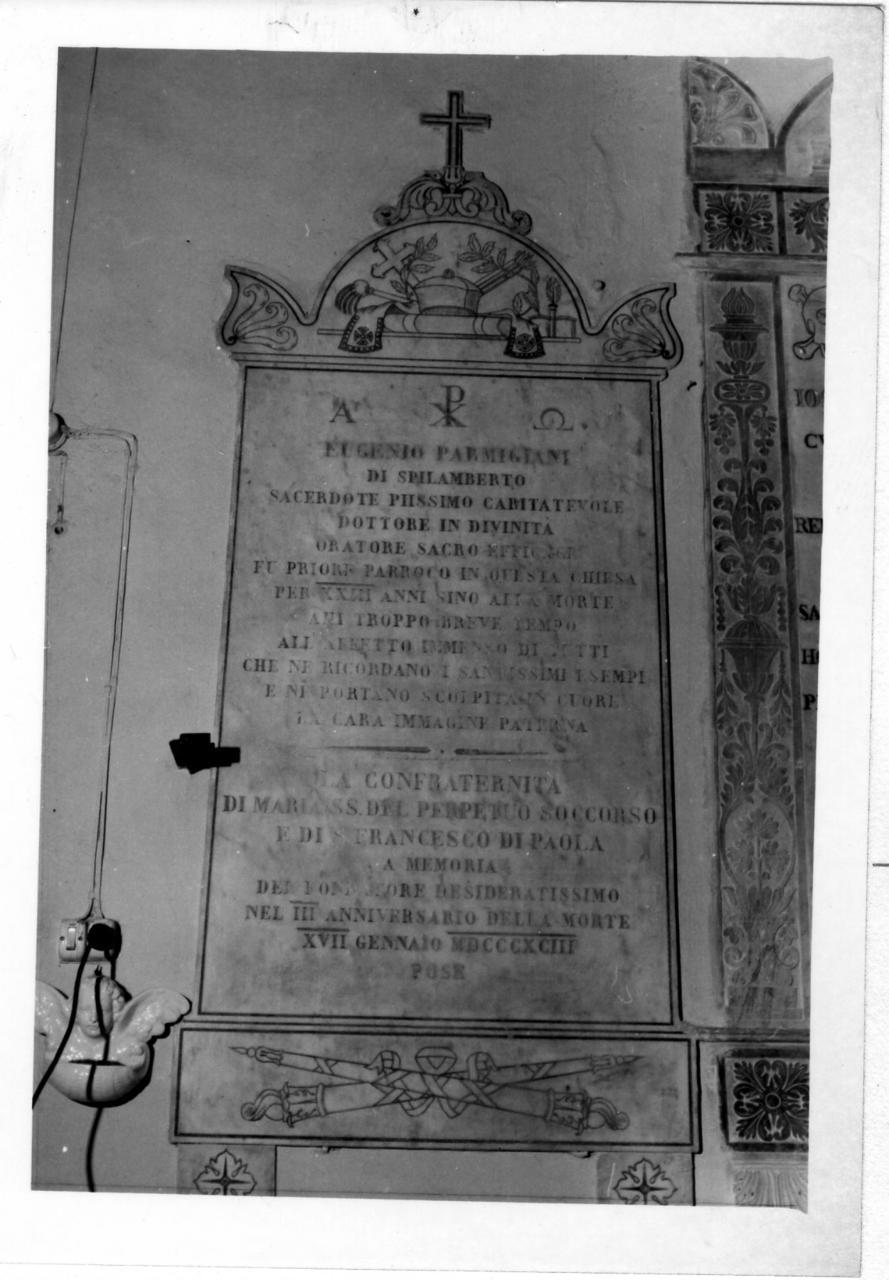 A ☧ Ω
EUGENIO PARMIGIANI
DI SPILAMBERTO
SACERDOTE PIISSIMO CARITATEVOLE
DOTTORE IN DIVINITÀ
ORATORE SACRO EFFICACE
FU PRIORE PARROCO IN QUESTA CHIESA
PER XXIII ANNI SINO ALLA MORTE
AHI TROPPO BREVE TEMPO
ALL'AFFETTO IMMENSO DI TUTTI
CHE NE RICORDANO I SANTISSIMI ESEMPI
E NE PORTANO SCOLPITA IN CUORE
LA CARA IMMAGINE PATERNA
LA CONFRATERNITA
DI MARIA SS. DEL PERPETUO SOCCORSO
E DI S. FRANCESCO DI PAOLA
A MEMORIA
DEL FONDATORE DESIDERATISSIMO
NEL III ANNIVERSARIO DELLA MORTE
XVII GENNAIO MDCCCXCIII
POSE